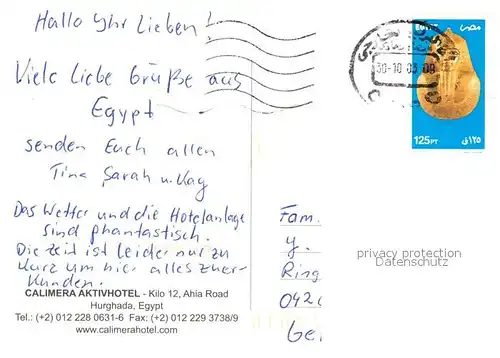 Hallo Ihr Lieben!
Viele liebe Grüße aus
Egypt
senden Euch allen
Tina, Sarah u. Kay
Das Wetter und die Hotelanlage
sind phantastisch.
Die Zeit ist leider nur zu
kurz um hier alles zu er-
kunden.
CALIMERA AKTIVHOTEL - Kilo 12, Ahia Road
Hurghada, Egypt
Tel.: (+2) 012 228 0631-6 Fax: (+2) 012 229 3738/9
www.calimerahotel.com
EGYPT مصر
30-10 03 09
125 PT ١٢٥ ق
Fam.
y.
Ring
042
Ge
privacy protection
Datenschutz